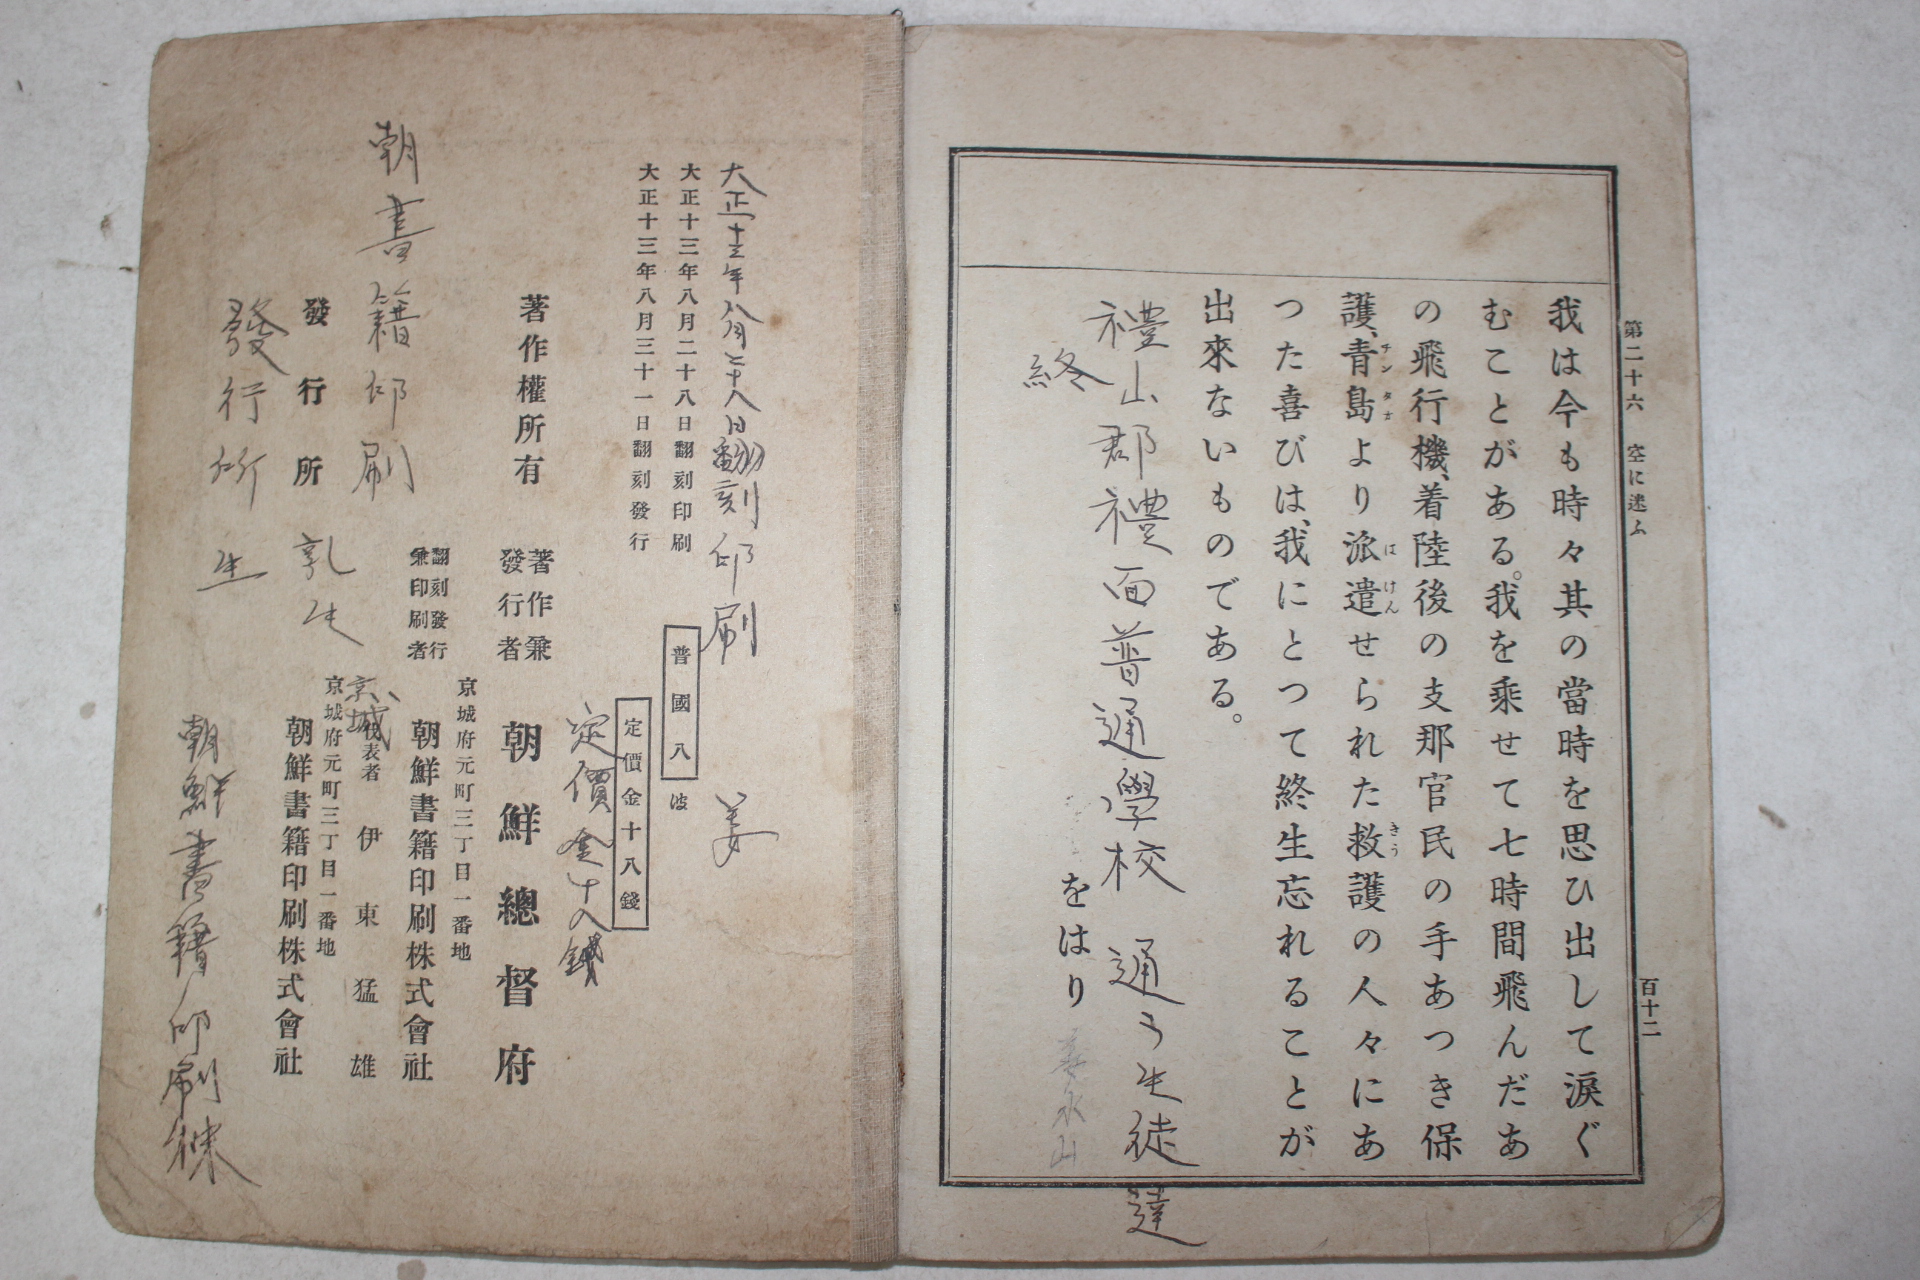 第二十六 空に迷ふ
百十二
我は今も時々其の當時を思ひ出して淚ぐ
むことがある。我を乘せて七時間飛んだあ
の飛行機、着陸後の支那官民の手あつき保
護、青島より派遣せられた救護の人々にあ
チンタオ
はけん
きう
つた喜びは、我にとつて終生忘れることが
出來ないものである。
禮山郡禮面普通學校 通う生徒達
終
をはり
姜
大正十三年八月二十八日翻刻印刷
大正十三年八月二十八日翻刻印刷
大正十三年八月三十一日翻刻發行
普國八
波
定價金十八錢
定價金十八錢
著作權所有
著作兼
發行者
朝鮮總督府
京城府元町三丁目一番地
翻刻發行
兼印刷者
朝鮮書籍印刷株式會社
朝書籍印刷
京城
代表者 伊東猛雄
京城府元町三丁目一番地
發行所
朝鮮書籍印刷株式會社
發行所
朝鮮書籍印刷株